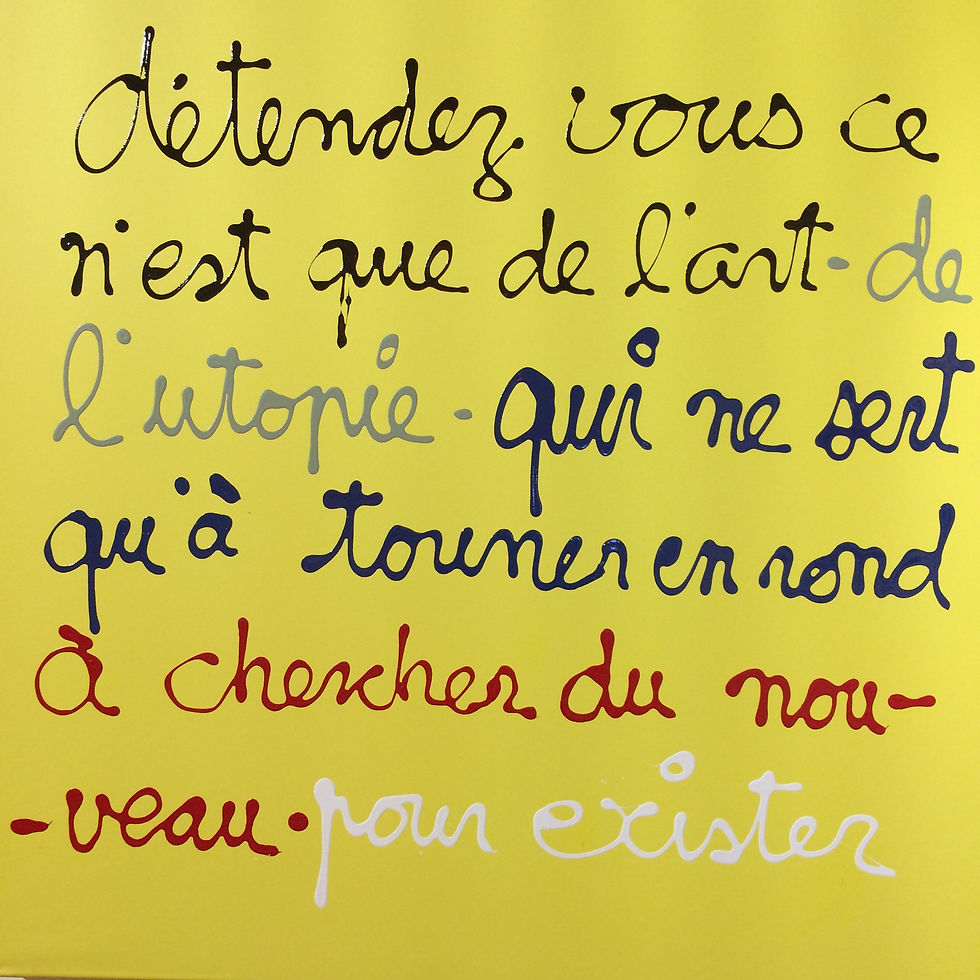 détendez vous ce
n'est que de l'art - de
l'utopie - qui ne sert
qu'à tourner en rond
à chercher du nou-
-veau. pour exister